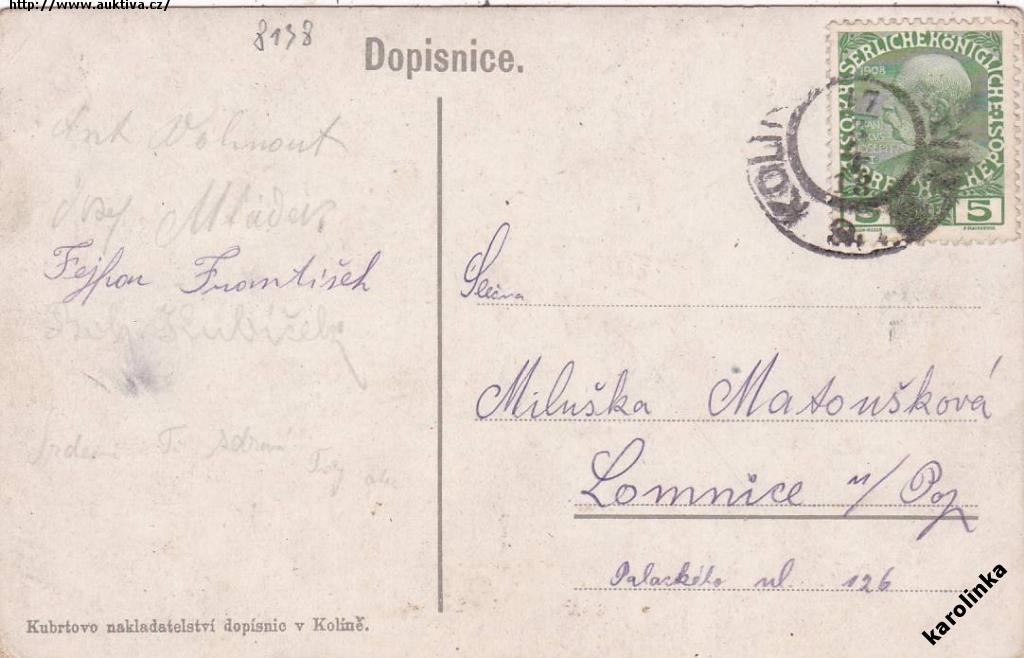 http://www.auktiva.cz/
8138
Dopisnice.
Ant Volmout
Josef Mládek
Fejfar František
Kubíček
Srdeční Ti zdraví
SERLICHEKÖNIGLICHE
1908
KOLÍN
5
Slečna
Miluška Matoušková
Lomnice n/Pop
Palackého ul 126
Kubrtovo nakladatelství dopisnic v Kolíně.
karolinka